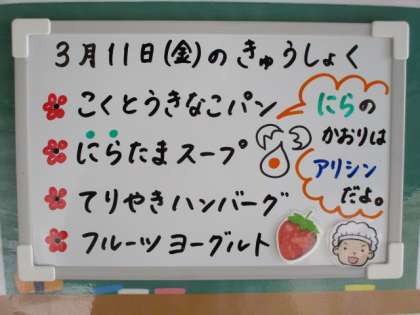 3月11日(金)のきゅうしょく
こくとうきなこパン
にらたまスープ
てりやきハンバーグ
フルーツヨーグルト
にらの
かおりは
アリシン
だよ。